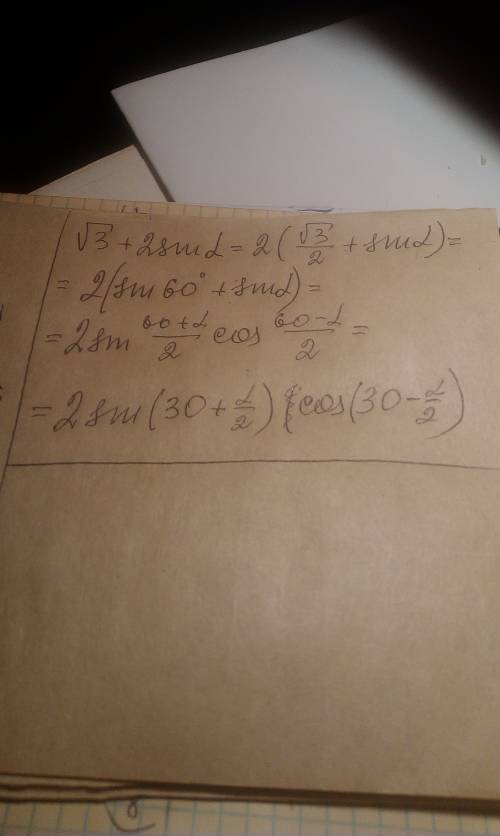 √3 + 2sin α = 2(√3/2 + sin α) =
= 2(sin 60° + sin α) =
= 2 sin (60+α)/2 cos (60-α)/2 =
= 2 sin(30 + α/2) cos(30 - α/2)